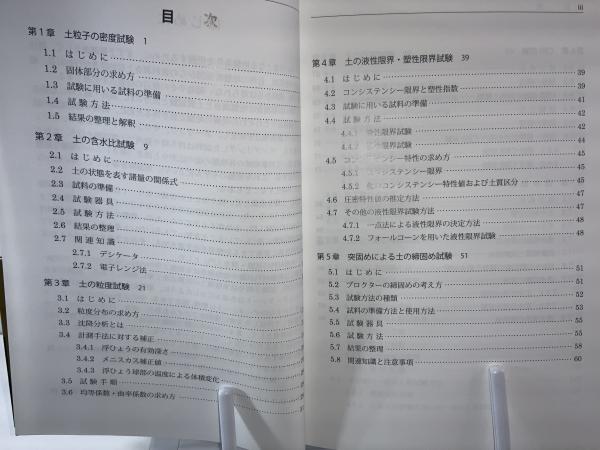 目 次
第1章 土粒子の密度試験 1
1.1 はじめに
1.2 固体部分の求め方
1.3 試験に用いる試料の準備
1.4 試験方法
1.5 結果の整理と解釈
第2章 土の含水比試験 9
2.1 はじめに
2.2 土の状態を表す諸量の関係式
2.3 試料の準備
2.4 試験器具
2.5 試験方法
2.6 結果の整理
2.7 関連知識
2.7.1 デシケータ
2.7.2 電子レンジ法
第3章 土の粒度試験 21
3.1 はじめに
3.2 粒度分布の求め方
3.3 沈降分析とは
3.4 計測手法に対する補正
3.4.1 浮ひょうの有効深さ
3.4.2 メニスカス補正値
3.4.3 浮ひょう球部の温度による体積変化
3.5 試験手順
3.6 均等係数・曲率係数の求め方
iii
第4章 土の液性限界・塑性限界試験 39
4.1 はじめに 39
4.2 コンシステンシー限界と塑性指数 39
4.3 試験に用いる試料の準備 41
4.4 試験方法 42
4.4.1 性限界試験 42
4.4.2 限界試験 44
4.5 コンシステンシー特性の求め方 45
4.5.1 ステンシー限界 45
4.5.2 コンシステンシー特性値および土質区分 45
4.6 圧密特性値の推定方法 47
4.7 その他の液性限界試験方法 47
4.7.1 一点法による液性限界の決定方法 48
4.7.2 フォールコーンを用いた液性限界試験 48
第5章 突固めによる土の締固め試験 51
5.1 はじめに 51
5.2 プロクターの締固めの考え方 51
5.3 試験方法の種類 52
5.4 試料の準備方法と使用方法 53
5.5 試験器具 55
5.6 試験方法 55
5.7 結果の整理 58
5.8 関連知識と注意事項 60